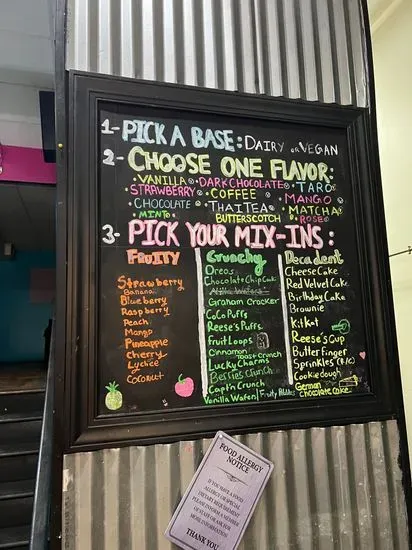 1- PICK A BASE: DAIRY or VEGAN
2- CHOOSE ONE FLAVOR:
VANILLA • DARK CHOCOLATE • TARO
STRAWBERRY • COFFEE • MANGO
CHOCOLATE • THAI TEA • MATCHA
MINT BUTTERSCOTCH • ROSE
3- PICK YOUR MIX-INS:
FRUITY
Strawberry
Banana
Blueberry
Raspberry
Peach
Mango
Pineapple
Cherry
Lychee
Coconut
Crunchy
Oreos
Chocolate Chip
Graham Cracker
CoCo Puffs
Reese's Puffs
Fruit Loops
Cinnamon
Toast Crunch
Lucky Charms
Berries Crunch
Cap'n Crunch
Vanilla Wafers / Fruity Pebbles
Decadent
Cheese Cake
Red Velvet Cake
Birthday Cake
Brownie
KitKat
Reese's Cup
Butterfinger
Sprinkles (R/C)
Cookie dough
German
Chocolate Cake
FOOD ALLERGY
NOTICE
IF YOU HAVE A FOOD
ALLERGY OR SPECIAL
DIETARY REQUIREMENT
PLEASE INFORM A MEMBER
OF STAFF OR ASK FOR
MORE INFORMATION
THANK YOU